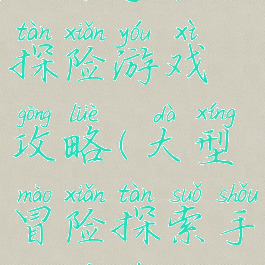 tàn xiǎn yóu xì
探险游戏
gōng lüè dà xíng
攻略(大型
mào xiǎn tàn suǒ shǒu
冒险探索手